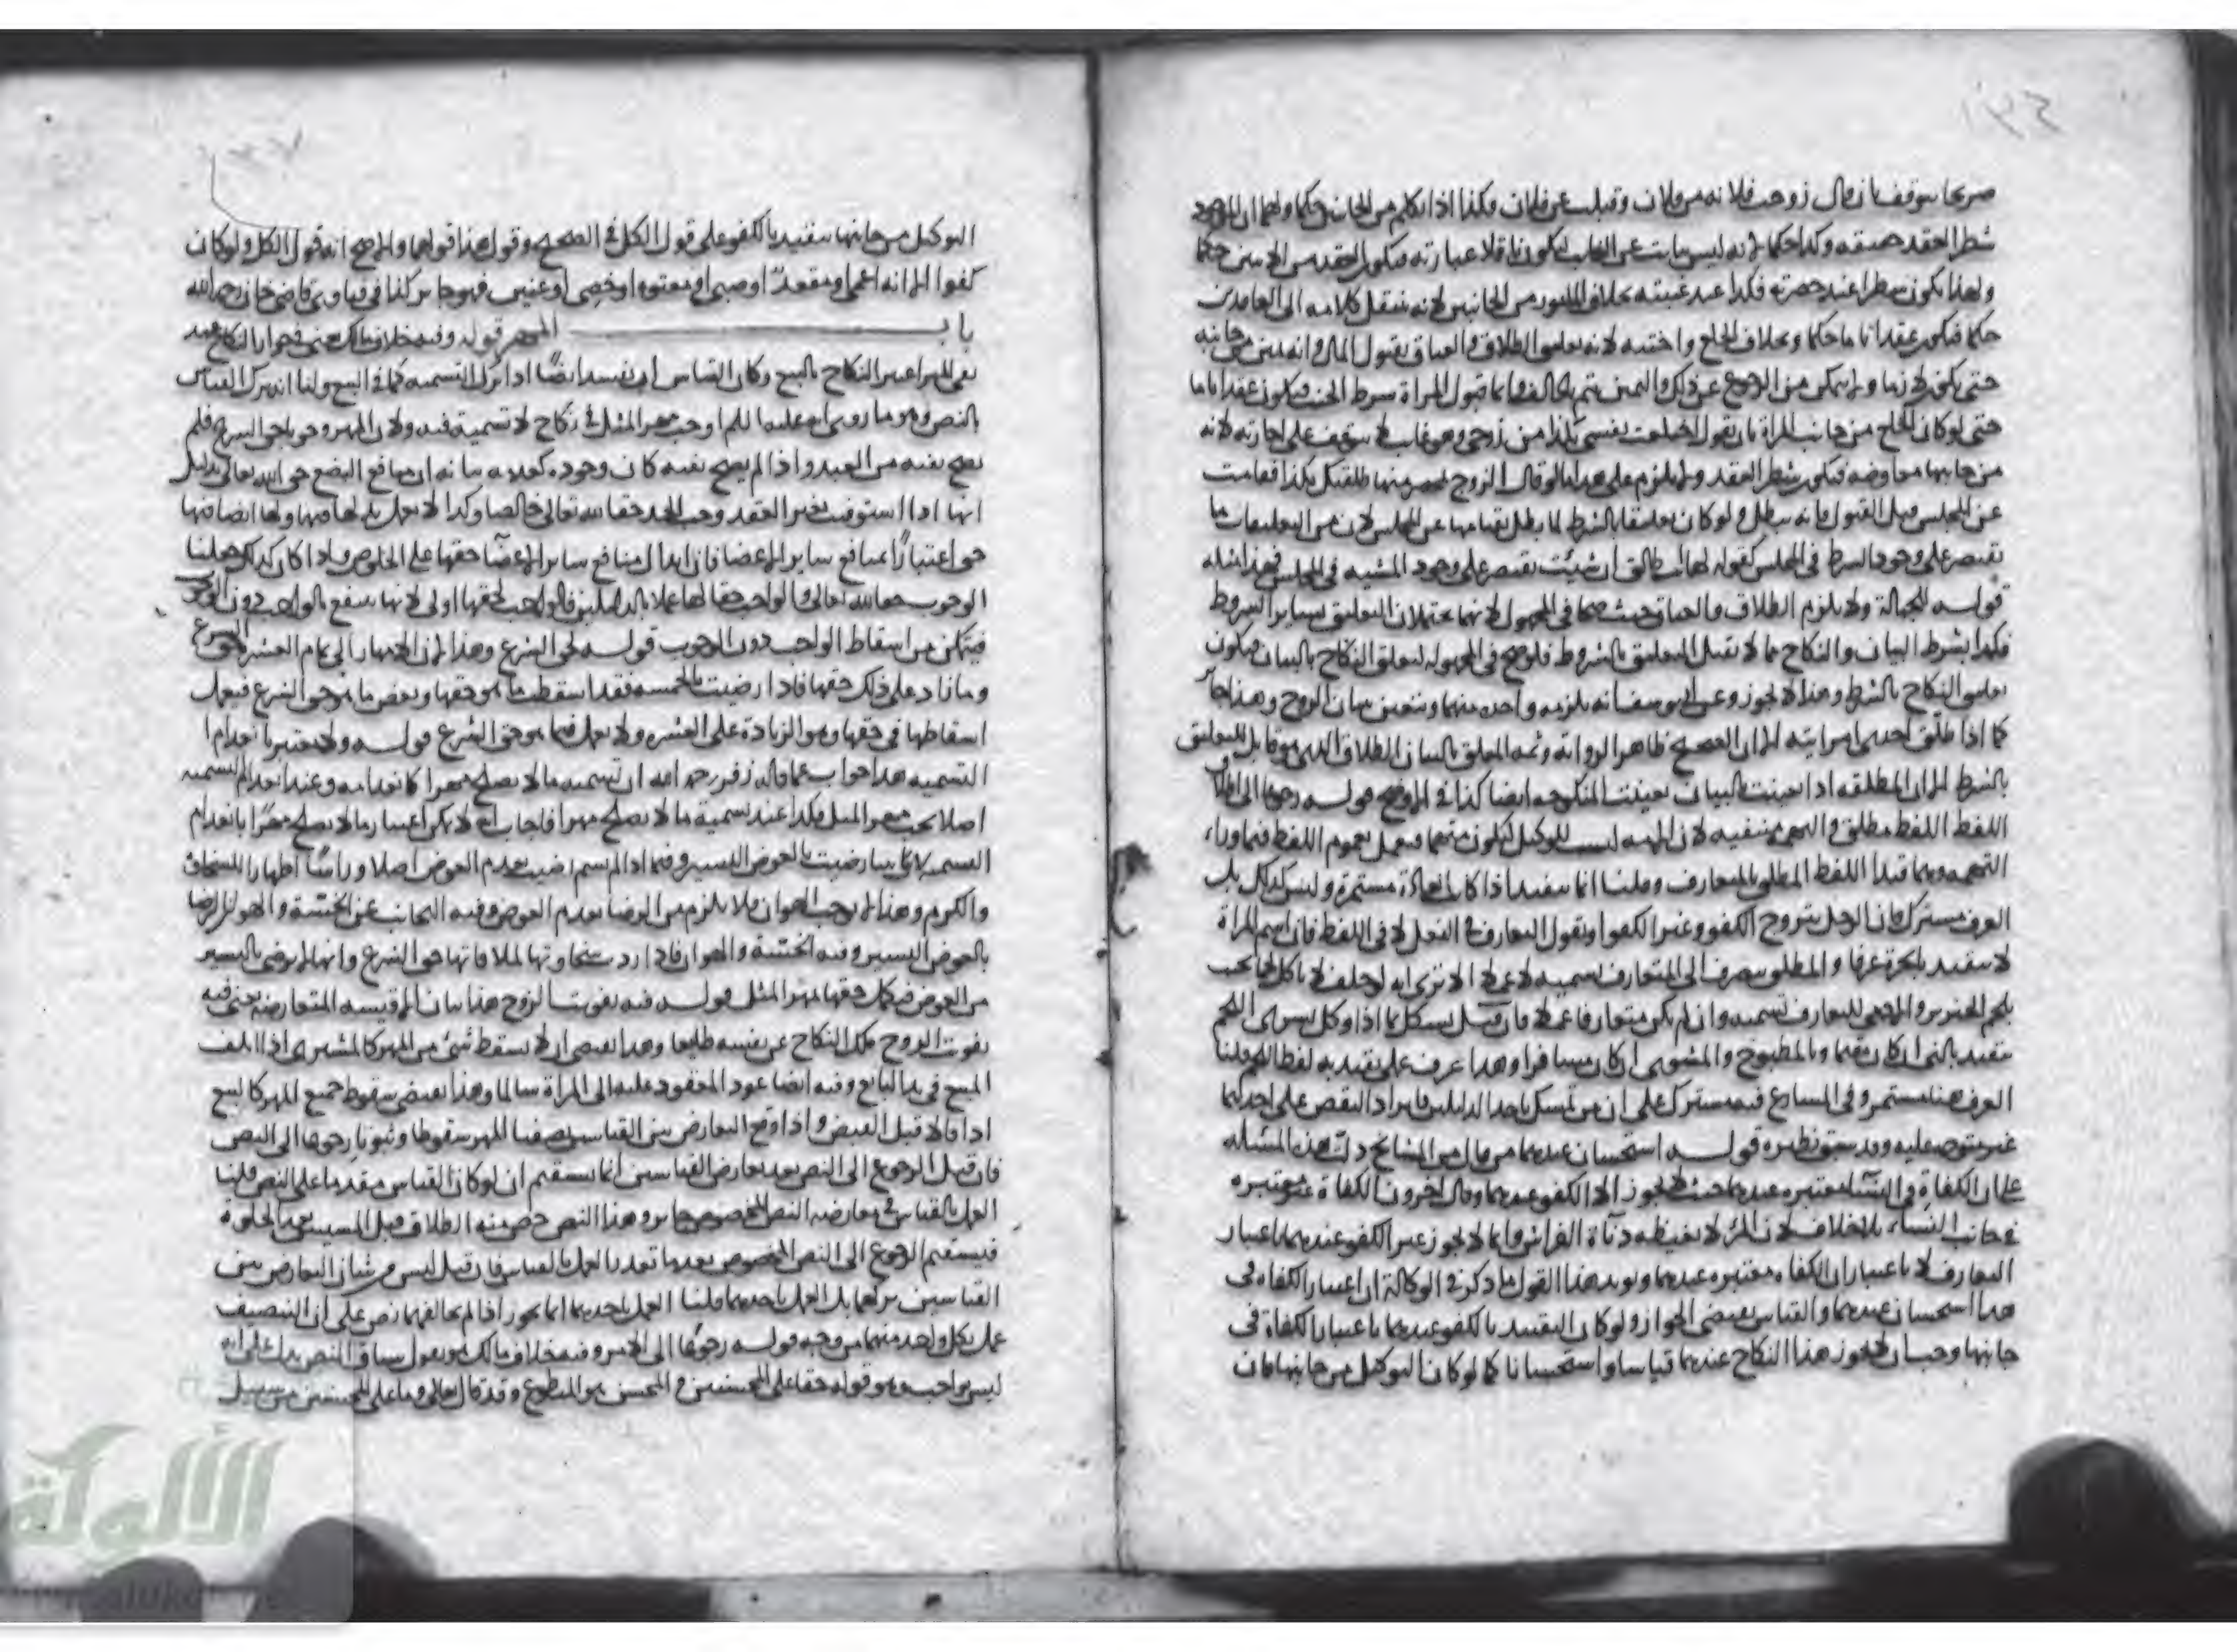 صريحا يتوقف بان قال زوجت فلانه من فلان وقبلت عن فلان فكذا اذا تكلم من الجانبين حكما ولهما ان الموجود
شطر العقد حقيقه وكذا حكما لانه ليس بنائب عن الغائب ليكون ناقلا عبارته فيكون العقد من الاثنين حكما
ولهذا يكون شطرا عند حضرته فكذا عند غيبته بخلاف المامور من الجانبين لانه ينتقل كلامه الى العاقدين
حكما فيكون عقدا تاما حكما وبخلاف الخلع واختيه لانه تعليق الطلاق والعتاق بقبول المال وانه يمين من جانبه
حتى يكون لازما ولم يتمكن من الرجوع عن ذلك واليمين يتم بالحالف وانما قبول المراة شرط الحنث فيكون عقدا تاما
حتى لو كان الخلع من جانب المراة بان تقول اختلعت نفسي بكذا من زوجي وهو غائب لا يتوقف على اجازته لانه
من جانبها معاوضه فيكون شطر العقد ولا يلزم على هذا ما لو قال الزوج بكذا فقامت
عن المجلس قبل القبول فانه يبطل ولو كان تعليقا بالشرط لما بطل بقيامها عن المجلس لان من التعليقات ما
يقتصر على وجود الشرط في المجلس كقوله لها انت طالق ان شئت يقتصر على وجود المشيه في المجلس فهذا مثله
قوله للجهالة ولا يلزم الطلاق والعتاق حيث صحا في المجهول لانهما يحتملان التعليق بساير الشروط
فكذا بشرط البيان والنكاح مما لا يقبل التعليق بالشروط فلو صح في المجهوله لتعلق النكاح بالبيان فيكون
تعليق النكاح بالشرط وهذا لا يجوز وعن ابي يوسف انه يلزمه واحده منهما ويتعين ببيان الزوج وهذا جائز
كما اذا طلق احدى امراتيه الا ان الصحيح ظاهر الرواية وثمه المعلق بالبيان الطلاق الذي هو قابل للتعليق
بالشرط الا ان المطلقه اذا تعينت بالبيان تعينت المنكوحه ايضا كذا في الاوضح قوله رجوعا الى اطلاق
اللفظ اللفظ مطلق والتهمه منتفيه لان الامه ليست للوكيل ليكون متهما فيعمل بعموم اللفظ فيما وراء
التهمه وهما قيدا اللفظ المطلق بالمتعارف وقلنا انما يتقيد اذا كان العادة مستمرة وليس كذلك بل
العرف مشترك فان الرجل يتزوج الكفو وغير الكفو او نقول التعارف في الفعل لا في اللفظ فان اسم المراة
لا يتقيد بالحرة عرفا والمطلق يصرف الى المتعارف تسمية لا عملا الا ترى انه لو حلف لا ياكل لحما يحنث
بلحم الخنزير والادمي للتعارف تسميه وان لم يكن متعارفا عملا فان قيل يشكل بما اذا وكل بشرى اللحم
يتقيد بالني ان كان مقيما وبالمطبوخ والمشوي ان كان مسافرا وهذا عرف عملي يقيد به لفظا قلنا
العرف هنا مستمر وفي المتنازع فيه مشترك على ان من تمسك باحد الدليلين فايراد النقض على احدهما
غير متوجه عليه وقد سبق نظيره قوله استحسان عندهما من قال من المشايخ دلت هذه المسئله
على ان الكفاءة في النساء معتبره عندهما حيث لا يجوز الا الكفو عندهما وقال اخرون الكفاة غير معتبره
في جانب النساء بلا خلاف لان المرء لا يغيظه دناءة الفراش وانما لا يجوز غير الكفو عندهما باعتبار
التعارف لا باعتبار ان الكفاه معتبره عندهما ويؤيد هذا القول ما ذكر في الوكالة ان اعتبار الكفاه في
هذا استحسان عندهما والقياس يقتضي الجواز ولو كان التقييد بالكفو عندهما باعتبار الكفاءة في
جانبها وجب ان لا يجوز هذا النكاح عندهما قياسا واستحسانا كما لو كان التوكيل من جانبها فان
التوكيل من جانبها يتقيد بالكفو على قول الكل في الصحيح وقول هذا قولهما والاصح انه قول الكل ولو كان
كفوا الا انه اعمى او مقعد او صبي او معتوه او خصي او عنين فهو جائز كذا في فتاوى قاضي خان رحمه الله
باب المهر قوله وفيه خلاف مالك يعني في جواز النكاح عند
نفي المهر اعتبر النكاح بالبيع وكان القياس ان يفسد ايضا اذا ترك التسميه كما في البيع ولنا انه ترك القياس
بالنص وهو ما روى انه عليه السلم اوجب مهر المثل في نكاح لا تسمية فيه ولان المهر وجوبا حق الشرع فلم
يصح نفيه من العبد واذا لم يصح نفيه كان وجوده كعدمه بيانه ان منافع البضع حق الله تعالى بدليل
انها اذا استوفيت بغير العقد وجب الحد حقا لله تعالى خالصا وكذا لا يعمل بذلها فيها ولها ايضا فيها
حق اعتبارا بمنافع ساير الاعضا فان ابدال منافع ساير الاعضا حقها على الخلوص واذا كان كذلك جعلنا
الوجوب حقا لله تعالى والواجب حقا لها عملا بالدليلين فالواجب لحقها اولى لانها تنتفع بالواجب دون الوجوب
فيتمكن من اسقاط الواجب دون الوجوب قوله لحق الشرع وهذا لان المهر الى تمام العشرة حق الشرع
وما زاد على ذلك حقها فاذا رضيت بالخمسه فقد اسقطت ما هو حقها وبعض ما هو حق الشرع فيعمل
اسقاطها في حقها وهو الزيادة على العشره ولا يعمل فيما هو حق الشرع قوله ولا يعتبر بانعدام
التسميه هذا جواب عما قال زفر رحمه الله ان تسميه ما لا يصلح مهرا كانعدامه وعند انعدام التسميه
اصلا يجب مهر المثل فكذا عند تسمية ما لا يصلح مهرا فاجاب انه لا يمكن اعتبار ما لا يصلح مهرا بانعدام
التسميه رضيت بالعوض اليسير وفيما اذا لم يسم رضيت بعدم العوض اصلا وراسا اظهارا للسخاوة
والكرم وهذا لا يوجب الهوان ولا يلزم من الرضا بعدم العوض وفيه التجانب عن الخسة والهوان الرضا
بالعوض اليسير وفيه الخسة والهوان فاذا رد سخاوتها لملاقاتها حق الشرع وانها لم ترض باليسير
من العوض فيكمل حقها مهر المثل قوله فيه تفويت الزوج هذا بيان الاقيسه المتعارضه يعني فيه
تفويت الزوج ملك النكاح عن نفسه طايعا وهذا يقتضي ان لا يسقط شيء من المهر كالمشتري اذا اتلف
المبيع في يد البايع وفيه ايضا عود المعقود عليه الى المراة سالما وهذا يقتضي سقوط جميع المهر كالبيع
اذا تقايلا قبل القبض واذا وقع التعارض بين القياسين نصفنا المهر سقوطا وثبوتا رجوعا الى النص
فان قيل الرجوع الى النص بعد تعارض القياسين انما يستقيم ان لو كان القياس مقدما على النص قلنا
العمل بالقياس في معارضه النص المخصوص جايز وهذا النص خص منه الطلاق قبل المسيس بعد الخلوة
فيستقيم الرجوع الى النص المخصوص بعدما تعذر العمل بالقياس فان قيل ليس من شان التعارض بين
القياسين تركهما بل العمل باحدهما قلنا العمل باحدهما انما يجوز اذا لم يخالفهما نص على ان التنصيف
عمل بكل واحد منهما من وجه قوله رجوعا الى الامر وفيه خلاف مالك هو يقول سياق النص يدل على انه
ليس بواجب وهو قوله حقا على المحسنين والمحسن هو المتطوع وقد قال تعالى وما على المحسنين من سبيل
الألوكة